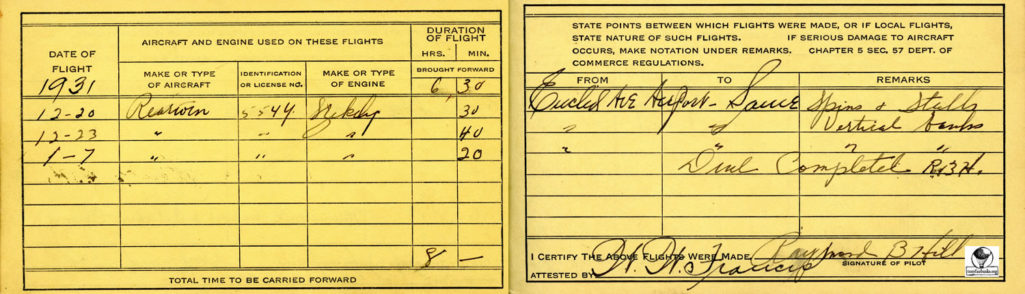 DATE OF FLIGHT
AIRCRAFT AND ENGINE USED ON THESE FLIGHTS
DURATION OF FLIGHT
HRS. MIN.
MAKE OR TYPE OF AIRCRAFT
IDENTIFICATION OR LICENSE NO.
MAKE OR TYPE OF ENGINE
BROUGHT FORWARD
1931 6 30
12-20 Rearwin 5544 Szekely 30
12-23 " " " 40
1-7 " " " 20
8 —
TOTAL TIME TO BE CARRIED FORWARD
STATE POINTS BETWEEN WHICH FLIGHTS WERE MADE, OR IF LOCAL FLIGHTS,
STATE NATURE OF SUCH FLIGHTS. IF SERIOUS DAMAGE TO AIRCRAFT
OCCURS, MAKE NOTATION UNDER REMARKS. CHAPTER 5 SEC. 57 DEPT. OF
COMMERCE REGULATIONS.
FROM TO REMARKS
Euclid Ave Airport - Same Spins & Stalls
" " Vertical banks
" " " "
Completed R.B.H.
I CERTIFY THE ABOVE FLIGHTS WERE MADE Raymond B Hill
SIGNATURE OF PILOT
ATTESTED BY Francis